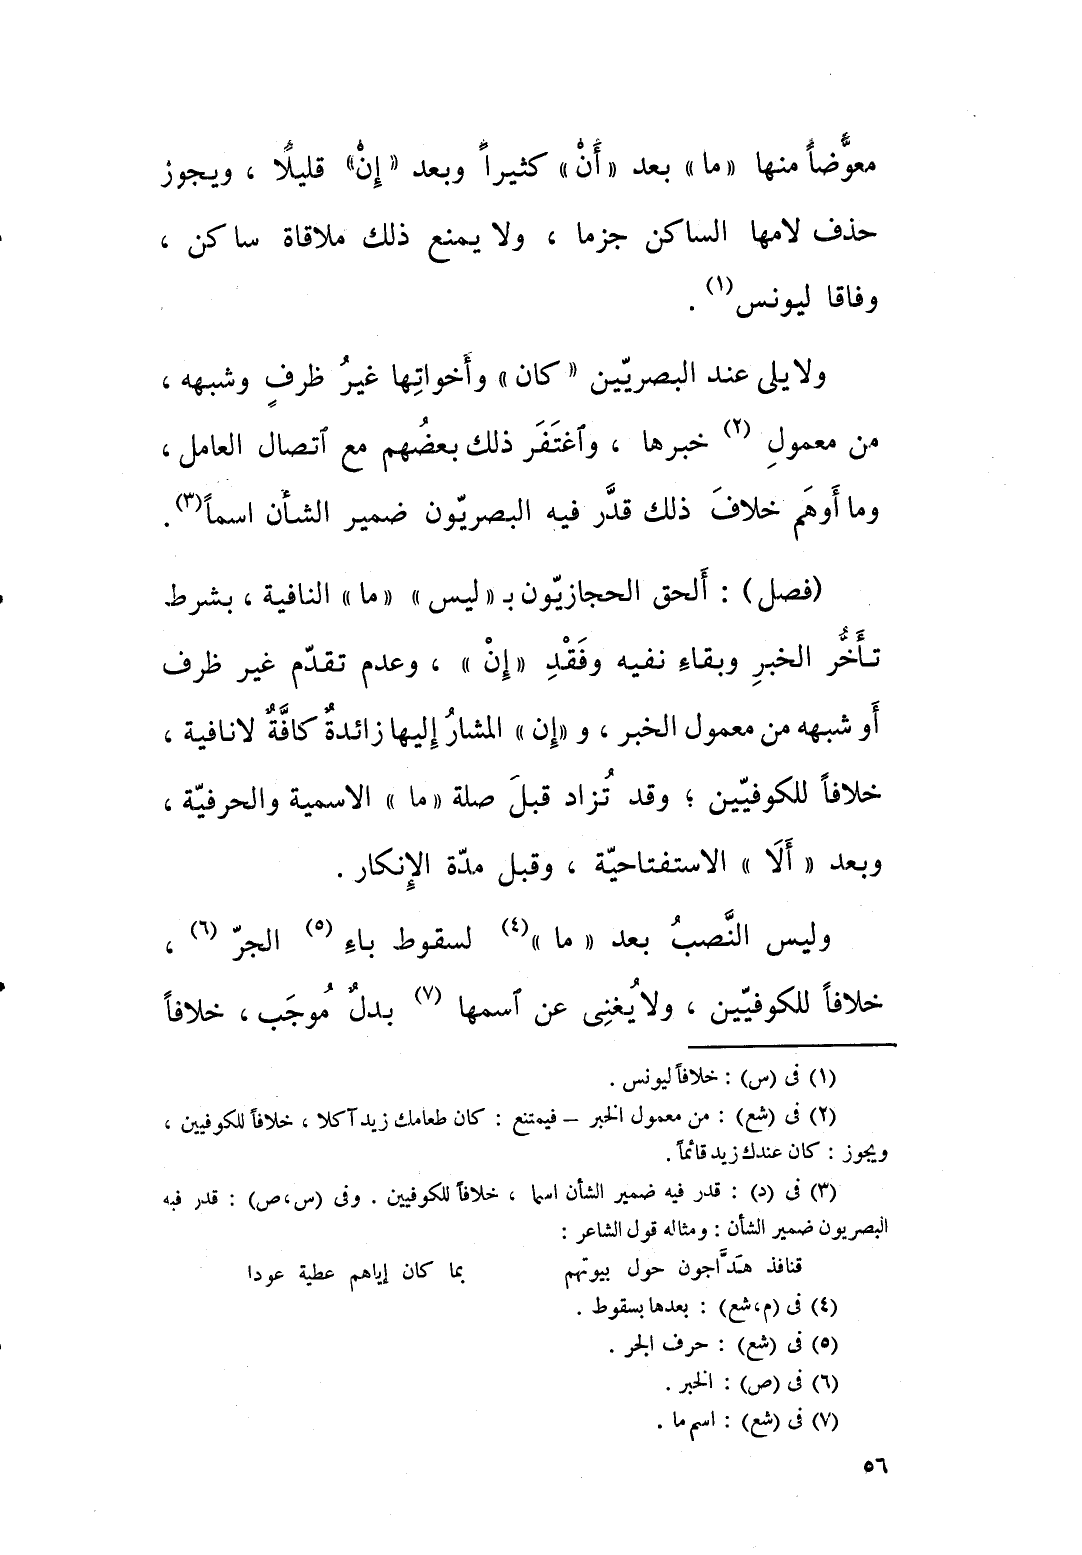 معوَّضاً منها «ما» بعد «أَنْ» كثيراً وبعد «إِنْ» قليلًا ، ويجوز
حذف لامها الساكن جزما ، ولا يمنع ذلك ملاقاة ساكن ،
وفاقا ليونس(١) .
ولا يلى عند البصريّين «كان» وأَخواتِها غيرُ ظرفٍ وشبهه ،
من معمولِ (٢) خبرها ، وٱغتَفَر ذلك بعضُهم مع ٱتصال العامل ،
وما أَوهَم خلافَ ذلك قدَّر فيه البصريّون ضمير الشأن اسماً(٣).
(فصل) : أَلحق الحجازيّون بـ «ليس» «ما» النافية ، بشرط
تأَخُّر الخبرِ وبقاءِ نفيه وفَقْدِ «إِنْ» ، وعدم تقدّم غير ظرف
أَو شبهه من معمول الخبر ، و «إِن» المشارُ إِليها زائدةٌ كافَّةٌ لا نافية ،
خلافاً للكوفيّين ؛ وقد تُزاد قبلَ صلة «ما» الاسمية والحرفيّة ،
وبعد «أَلَا» الاستفتاحيّة ، وقبل مدّة الإِنكار .
وليس النَّصبُ بعد «ما»(٤) لسقوط باءِ (٥) الجرّ (٦) ،
خلافاً للكوفيّين ، ولا يُغنِى عن ٱسمها (٧) بدلٌ مُوجَب ، خلافاً
(١) فى (س) : خلافاً ليونس .
(٢) فى (شع) : من معمول الخبر – فيمتنع : كان طعامك زيد آكلا ، خلافاً للكوفيين ،
ويجوز : كان عندك زيد قائماً .
(٣) فى (د) : قدر فيه ضمير الشأن اسما ، خلافاً للكوفيين . وفى (س،ص) : قدر فيه
البصريون ضمير الشأن : ومثاله قول الشاعر :
قنافذ هدَّاجون حول بيوتهم بما كان إياهم عطية عودا
(٤) فى (م،شع) : بعدها بسقوط .
(٥) فى (شع) : حرف الجر .
(٦) فى (ص) : الخبر .
(٧) فى (شع) : اسم ما .
٥٦